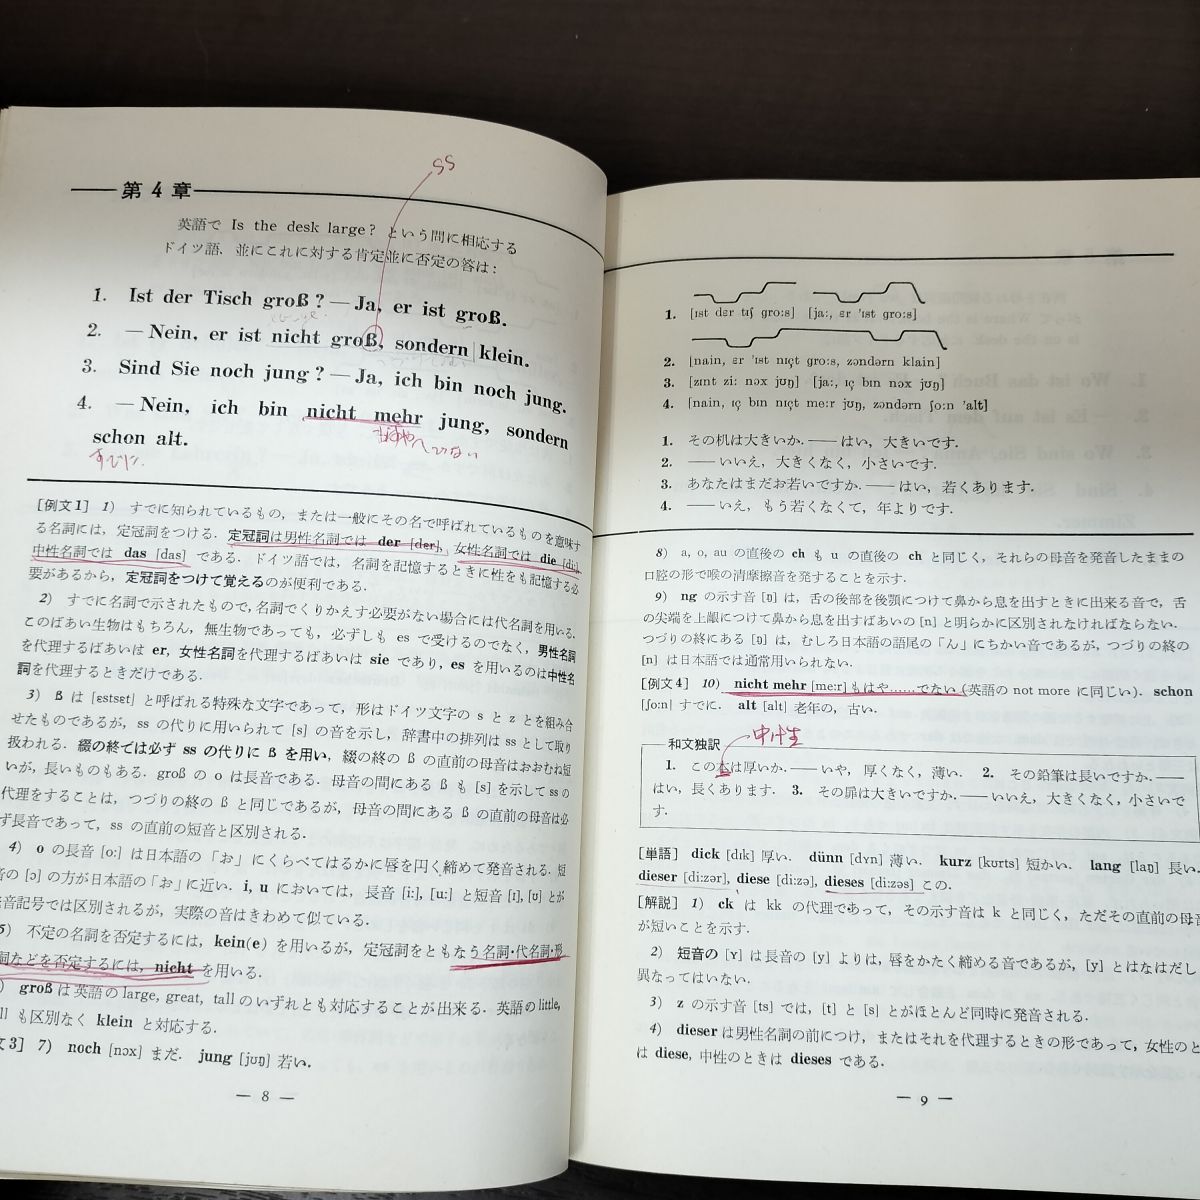 第4章
ss
英語で Is the desk large? という問に相応する
ドイツ語, 並にこれに対する肯定並に否定の答は:
1. Ist der Tisch groß? — Ja, er ist groß.
2. — Nein, er ist nicht groß, sondern klein.
3. Sind Sie noch jung? — Ja, ich bin noch jung.
4. — Nein, ich bin nicht mehr jung, sondern
schon alt.
もはや〜でない
すでに.
[例文1] 1) すでに知られているもの, または一般にその名で呼ばれているものを意味す
る名詞には, 定冠詞をつける. 定冠詞は男性名詞では der [der], 女性名詞では die [di:],
中性名詞では das [das] である. ドイツ語では, 名詞を記憶するときに性をも記憶する必
要があるから, 定冠詞をつけて覚えるのが便利である.
2) すでに名詞で示されたもので, 名詞でくりかえす必要がない場合には代名詞を用いる.
このばあい生物はもちろん, 無生物であっても, 必ずしも es で受けるのでなく, 男性名詞
を代理するばあいは er, 女性名詞を代理するばあいは sie であり, es を用いるのは中性名
詞を代理するときだけである.
3) ß は [ɛstsɛt] と呼ばれる特殊な文字であって, 形はドイツ文字の s と z とを組み合
せたものであるが, ss の代りに用いられて [s] の音を示し, 辞書中の排列は ss として取り
扱われる. 綴の終では必ず ss の代りに ß を用い, 綴の終の ß の直前の母音はおおむね短
いが, 長いものもある. groß の o は長音である. 母音の間にある ß も [s] を示して ss の
代理をすることは, つづりの終の ß と同じであるが, 母音の間にある ß の直前の母音は必
ず長音であって, ss の直前の短音と区別される.
4) o の長音 [o:] は日本語の「お」にくらべてはるかに唇を円く締めて発音される. 短
音の [ɔ] の方が日本語の「お」に近い. i, u においては, 長音 [i:], [u:] と短音 [ɪ], [ʊ] とが
発音記号では区別されるが, 実際の音はきわめて似ている.
5) 不定の名詞を否定するには, kein(e) を用いるが, 定冠詞をともなう名詞・代名詞・形
詞などを否定するには, nicht を用いる.
) groß は英語の large, great, tall のいずれとも対応することが出来る. 英語の little,
ll も区別なく klein と対応する.
文3] 7) noch [nɔx] まだ. jung [jʊŋ] 若い.
— 8 —
1. [ɪst dɛr tɪʃ gro:s] [ja:, ɛr 'ɪst gro:s]
2. [nain, ɛr 'ɪst nɪçt gro:s, zɔndərn klain]
3. [zɪnt zi: nɔx jʊŋ] [ja:, ɪç bɪn nɔx jʊŋ]
4. [nain, ɪç bɪn nɪçt me:r jʊŋ, zɔndərn ʃo:n 'alt]
1. その机は大きいか. — はい, 大きいです.
2. — いいえ, 大きくなく, 小さいです.
3. あなたはまだお若いですか. — はい, 若くあります.
4. — いえ, もう若くなくて, 年よりです.
8) a, o, au の直後の ch も u の直後の ch と同じく, それらの母音を発音したままの
口腔の形で喉の清摩擦音を発することを示す.
9) ng の示す音 [ŋ] は, 舌の後部を後顎につけて鼻から息を出すときに出来る音で, 舌
の尖端を上齦につけて鼻から息を出すばあいの [n] と明らかに区別されなければならない.
つづりの終にある [ŋ] は, むしろ日本語の語尾の「ん」にちかい音であるが, つづりの終の
[n] は日本語では通常用いられない.
[例文4] 10) nicht mehr [me:r] もはや……でない (英語の not more に同じい). schon
[ʃo:n] すでに. alt [alt] 老年の, 古い.
和文独訳
中性
1. この本は厚いか. — いや, 厚くなく, 薄い. 2. その鉛筆は長いですか. —
はい, 長くあります. 3. その扉は大きいですか. — いいえ, 大きくなく, 小さいで
す.
[単語] dick [dɪk] 厚い. dünn [dʏn] 薄い. kurz [kʊrts] 短かい. lang [laŋ] 長い.
dieser [di:zər], diese [di:zə], dieses [di:zəs] この.
[解説] 1) ck は kk の代理であって, その示す音は k と同じく, ただその直前の母音
が短いことを示す.
2) 短音の [ʏ] は長音の [y] よりは, 唇をかたく締める音であるが, [y] とはなはだし
異なってはいない.
3) z の示す音 [ts] では, [t] と [s] とがほとんど同時に発音される.
4) dieser は男性名詞の前につけ, またはそれを代理するときの形であって, 女性のと
は diese, 中性のときは dieses である.
— 9 —